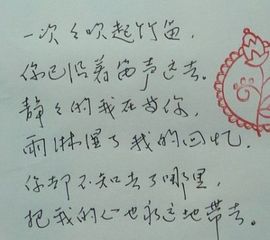 一次次吹起竹笛，
你已沿着笛声远去。
静静的我在等你，
雨淋湿了我的回忆，
你却不知去了哪里，
把我的心也永远地带去。